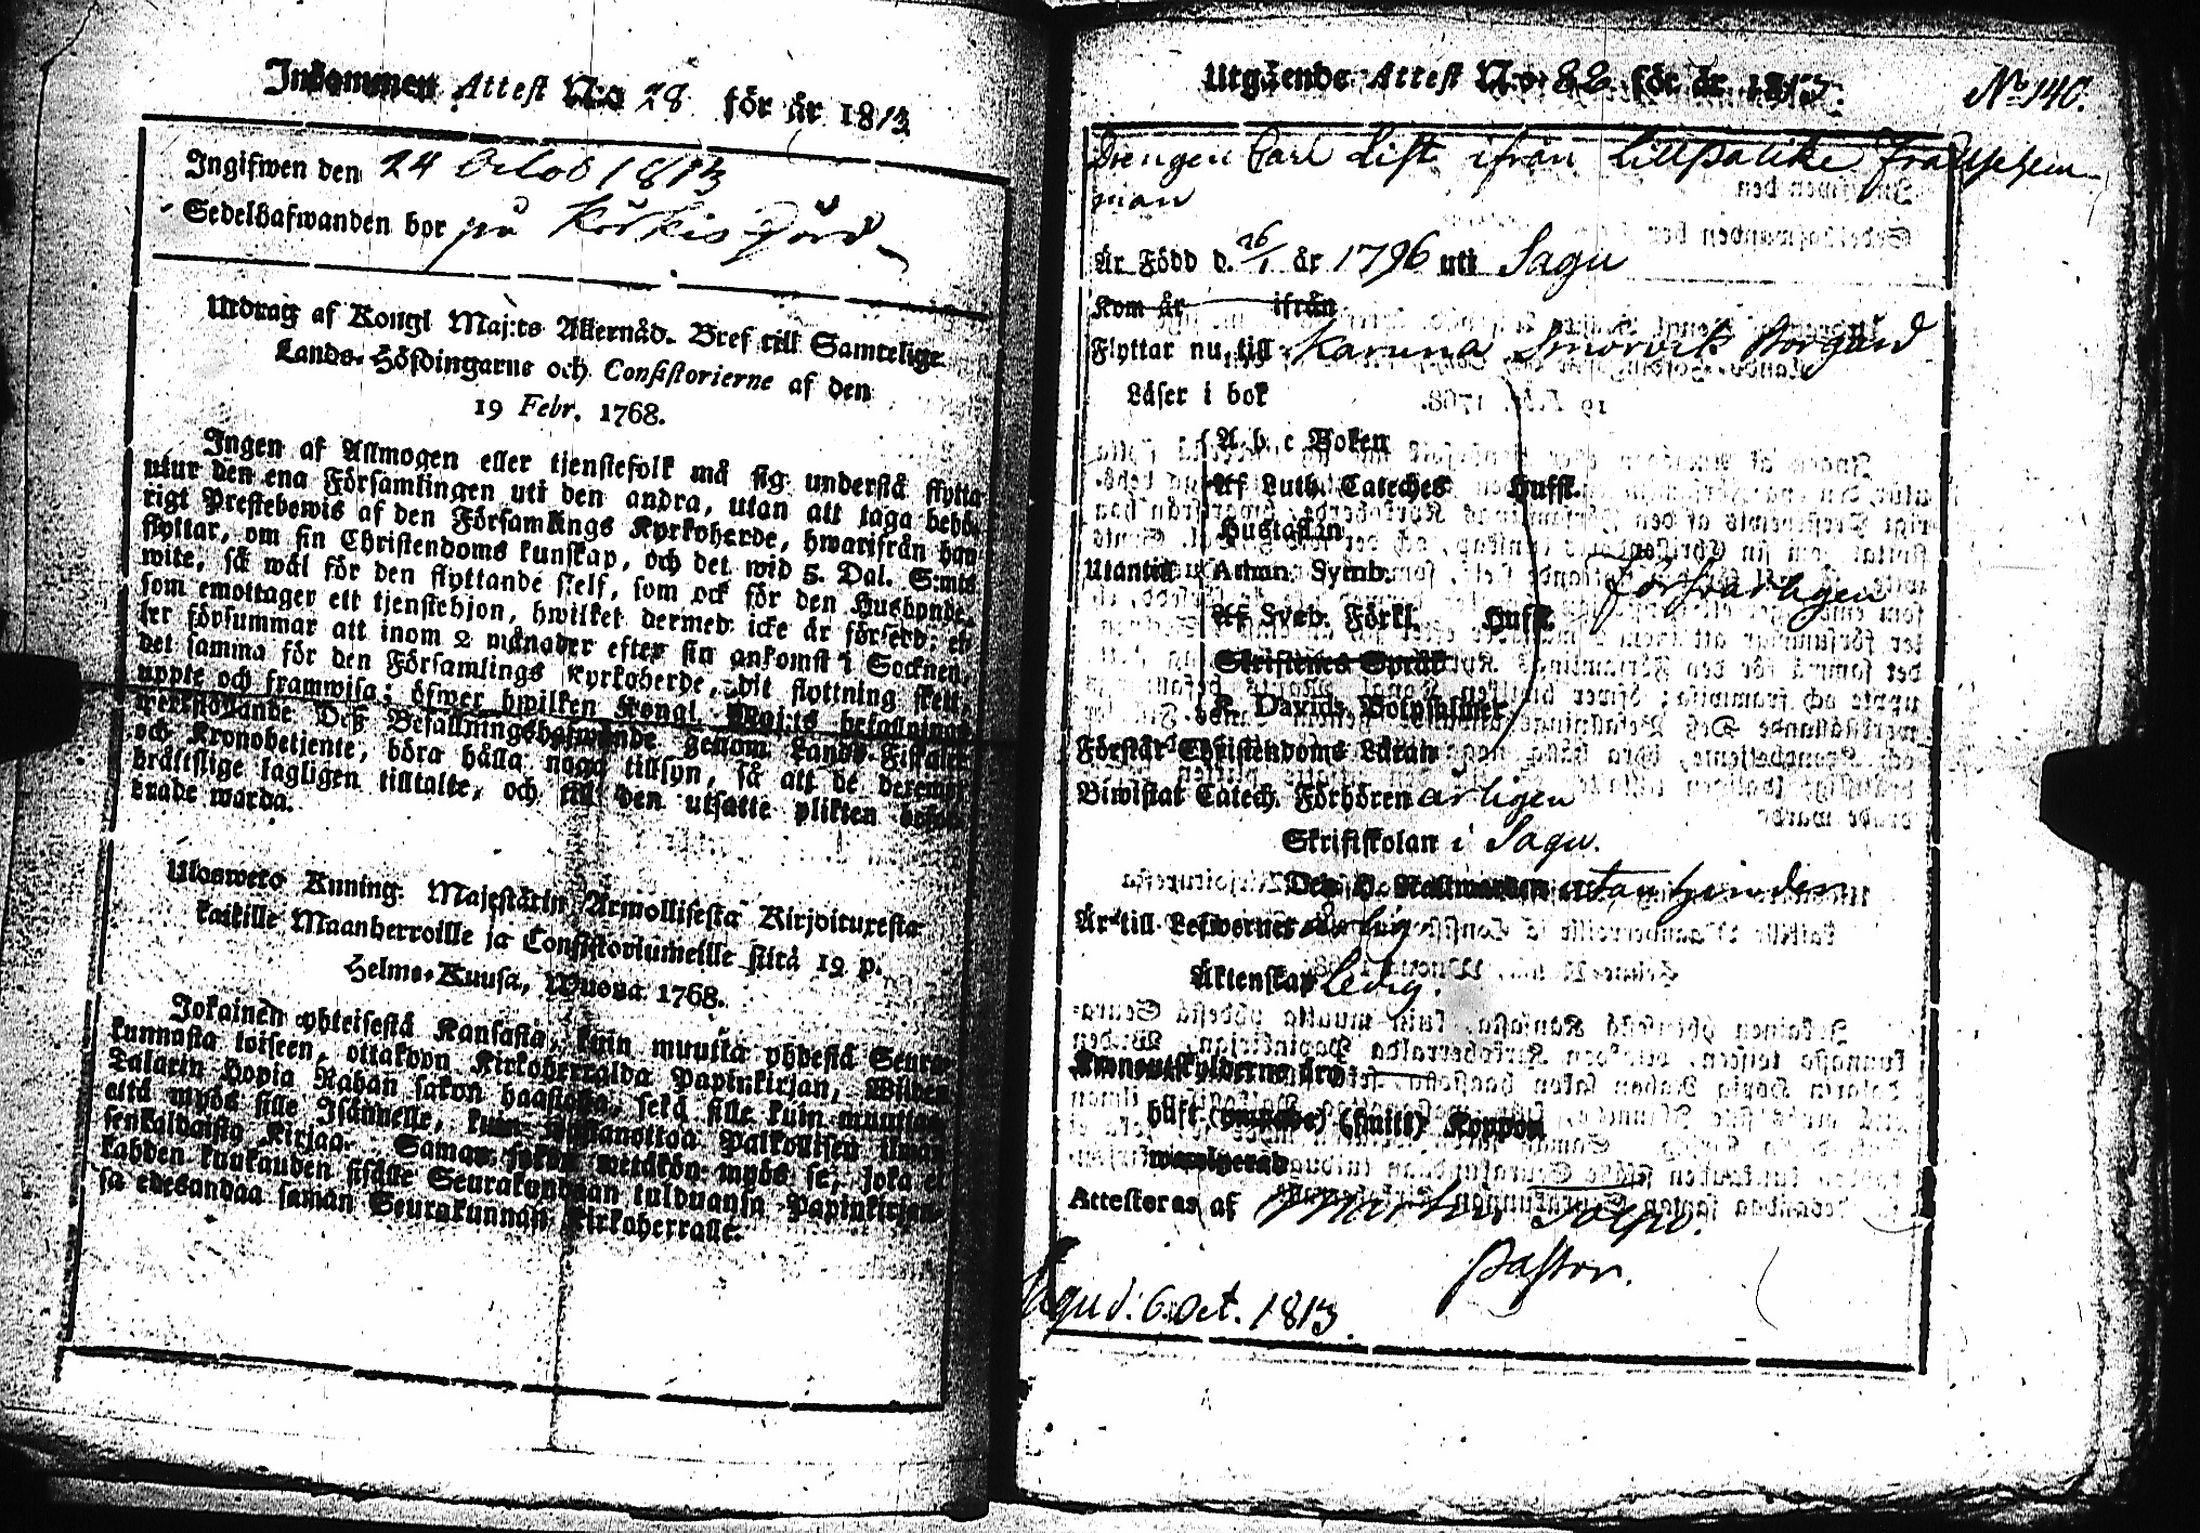 Inkommen Attest N:o 28 för år 1813
Ingifwen den 24 Octob 1813
Sedelhafwanden bor på Körkis Gård
Utdrag af Kongl Maj:ts Allernåd. Bref till Samtelige
Lands-Höfdingarne och Consistorierne af den
19 Febr. 1768.
Ingen af Allmogen eller tjenstefolk må sig understå flytta
utur den ena Församlingen uti den andra, utan att taga behö-
rigt Prestebewis af den Församlings Kyrkoherde, hwarifrån han
flyttar, om sin Christendoms kunskap, och det wid 5. Dal. S:mts
wite, så wäl för den flyttande sjelf, som ock för den Husbonde,
som emottager ett tjenstehjon, hwilket dermed icke är försedt: el-
ler försummar att inom 2 månader efter sin ankomst i Socknen
det samma för den Församlings Kyrkoherde, dit flyttning skett,
uppte och framwisa; öfwer hwilken Kongl. Maj:ts befallnings
werkställande Deß Befallningshafwande genom Lands-Fiskaler
och Kronobetjente, böra hålla noga tillsyn, så att de deremot
bråttslige lagligen tilltalte, och till den utsatte plikten befor-
drade warda.
Ulosweto Kuning: Majestätin Armollisesta Kirjoituxesta
kaikille Maanherroille ja Consistoriumeille siitä 19 p.
Helme-Kuusa, Wuona 1768.
Jokainen yhteisestä Kansasta, kuin muutta yhdestä Seura-
kunnasta toiseen, ottakoon Kirkoherralda Papinkirjan, Wiiden
Talarin Hopia Rahan sakon haastolla, sekä sille kuin muuttaa
että myös sille Isännelle, kuin wastanottaa Palkollisen ilman
senkaldaista Kirjaa. Saman sakon wetäkön myös se, joka ei
kahden kuukauden sisälle Seurakundaan tulduansa Papinkirjan-
sa edesandaa saman Seurakunnan Kirkoherralle.
Utgående Attest N:o 82 för år 1813.
No 140.
Drengen Carl Lift ifrån Lillpatike
man
Är Född d. 26/1 år 1796 uti Sagu
Kom år ifrån
Flyttar nu till Karuna Smörvik Storgård
Läser i bok
A. b. c Boken
Af Luth. Cateches Hufst.
Hustaflan
Utantill Athan. Symb.
försvarligen
Af Sveb. Förkl. Hufst.
Skriftenes Språk
K. Davids Botpsalmer
Förstår Christendoms Läran
Biwistat Catech. Förhören årligen
Skriftskolan i Sagu.
Den H. Nattwarden utan hinder
Är till Lefwernet ärlig
Äktenskap ledig.
Kronoutskylderne äro
haft (ympade) (smitt) Koppor
Attesteras af Martin Tolpo.
Pastor.
Sagu d. 6. Oct. 1813.